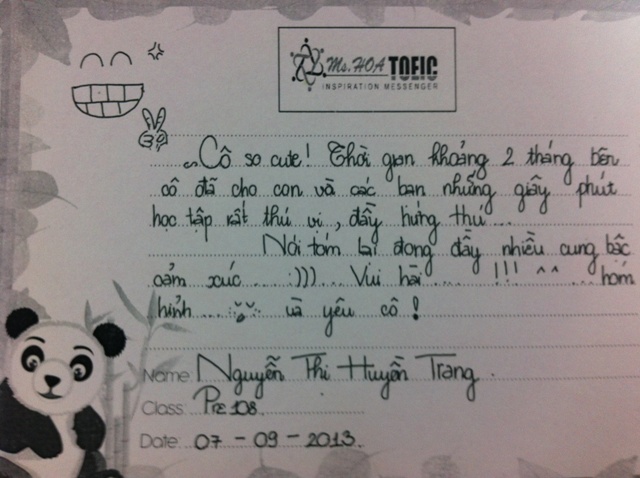 Ms. HOA TOEIC
INSPIRATION MESSENGER
Cô so cute! Thời gian khoảng 2 tháng bên
cô đã cho con và các bạn những giây phút
học tập rất thú vị, đầy hứng thú...
Nói tóm lại đong đầy nhiều cung bậc
cảm xúc ... :))) ... Vui hài ... !!! ^^ ... hóm
hỉnh ..... và yêu cô!
Name: Nguyễn Thị Huyền Trang.
Class: Pre 108.
Date: 07 - 09 - 2013.